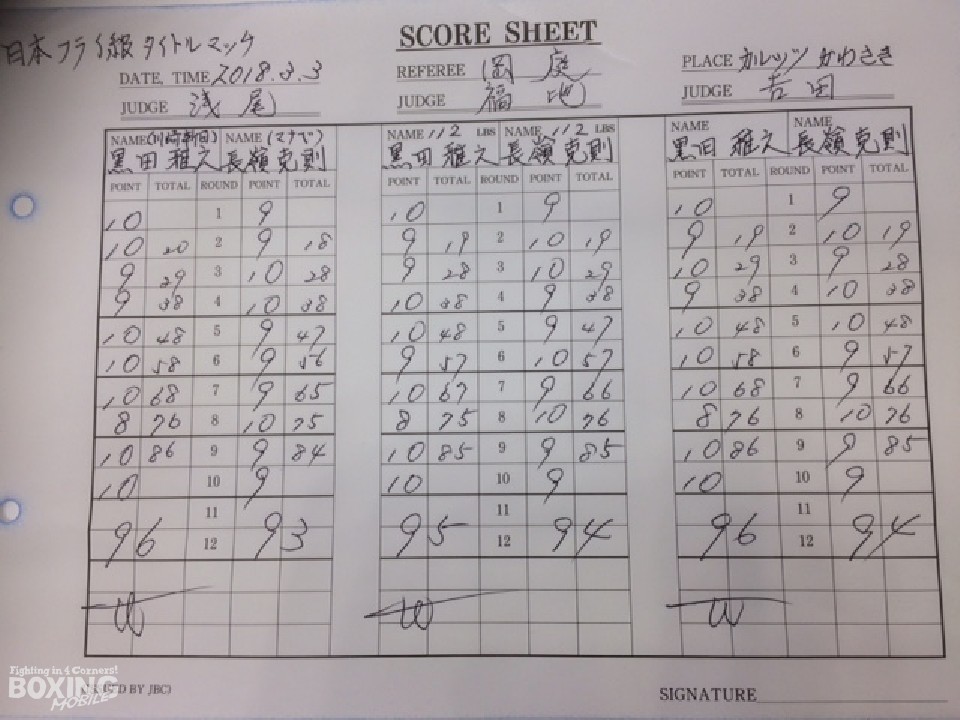 SCORE SHEET
日本フライ級タイトルマッチ
DATE, TIME 2018.3.3
REFEREE 岡庭
PLACE カルッツかわさき
JUDGE 浅尾
JUDGE 福地
JUDGE 吉田
NAME (川崎新田) NAME (マナベ) NAME 112 LBS NAME 112 LBS NAME NAME
黒田雅之 長嶺克則 黒田雅之 長嶺克則 黒田雅之 長嶺克則
POINT TOTAL ROUND POINT TOTAL POINT TOTAL ROUND POINT TOTAL POINT TOTAL ROUND POINT TOTAL
10 1 9 10 1 9 10 1 9
10 20 2 9 18 9 19 2 10 19 9 19 2 10 19
9 29 3 10 28 9 28 3 10 29 10 29 3 9 28
9 38 4 10 38 10 38 4 9 38 9 38 4 10 38
10 48 5 9 47 10 48 5 9 47 10 48 5 10 48
10 58 6 9 56 9 57 6 10 57 10 58 6 9 57
10 68 7 9 65 10 67 7 9 66 10 68 7 9 66
8 76 8 10 75 8 75 8 10 76 8 76 8 10 76
10 86 9 9 84 10 85 9 9 85 10 86 9 9 85
10 10 9 10 10 9 10 10 9
11 11 11
96 12 93 95 12 94 96 12 94
W W W
Fighting in 4 Corners!
BOXING
MOBILE
BY JBC)
SIGNATURE